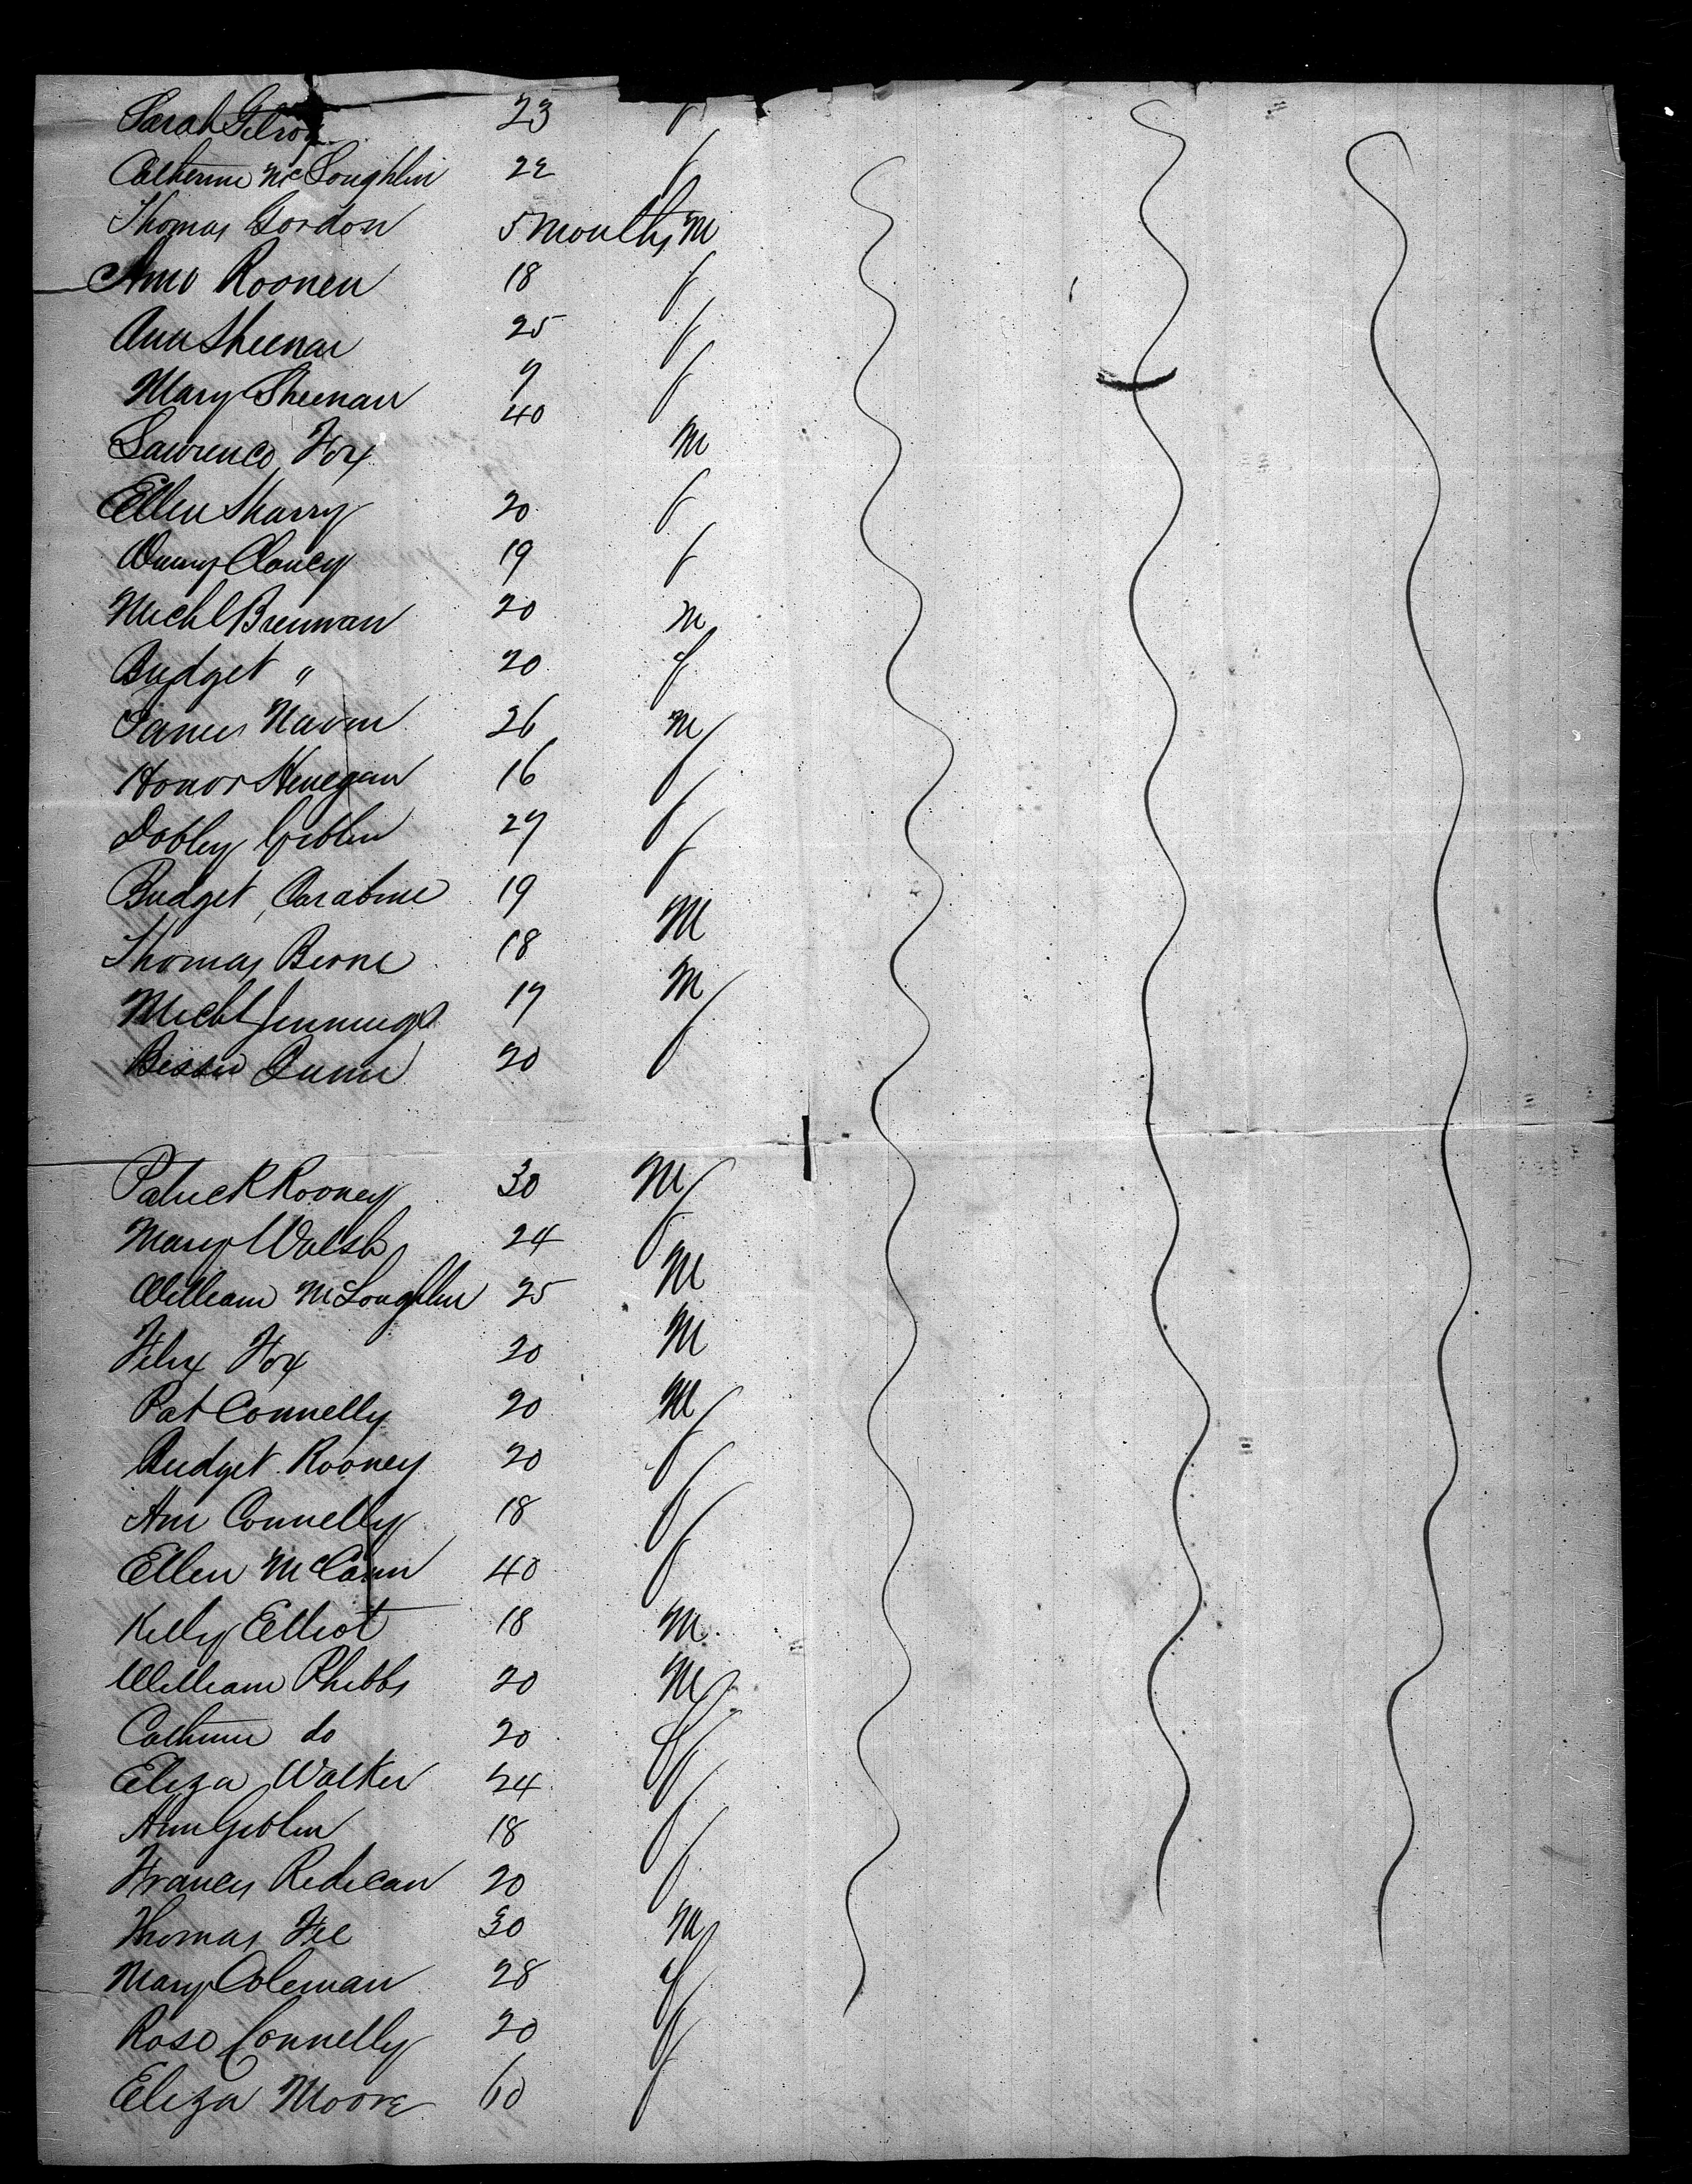 Sarah Gilroy 23 f
Catherine McLoughlin 22 f
Thomas Gordon 5 months M
Ann Rooney 18 f
Ann Sheenan 25 f
Mary Sheenan 9 f
Lawrence Fox 40 M
Ellen Sharry 20 f
Winny Clancy 19 f
Michl Brennan 20 M
Bridget " 20 f
James Navin 26 M
Honor Henegan 16 f
Giblin 27 f
Bridget Carabine 19 f
Thomas Beirne 18 M
Michl Jennings 19 M
Bessie Quinn 20 f
Patrick Rooney 30 M
Mary Walsh 24 f
William McLoughlin 25 M
Felix Fox 20 M
Pat Connelly 20 M
Bridget Rooney 20 f
Ann Connelly 18 f
Ellen McCann 40 f
Kelly Elliot 18 M
William Phibbs 20 M
Catherine do 20 f
Eliza Walker 24 f
Ann Giblin 18 f
Frances Redican 20 f
Thomas Fee 30 M
Mary Coleman 28 f
Rose Connelly 20 f
Eliza Moore 60 f